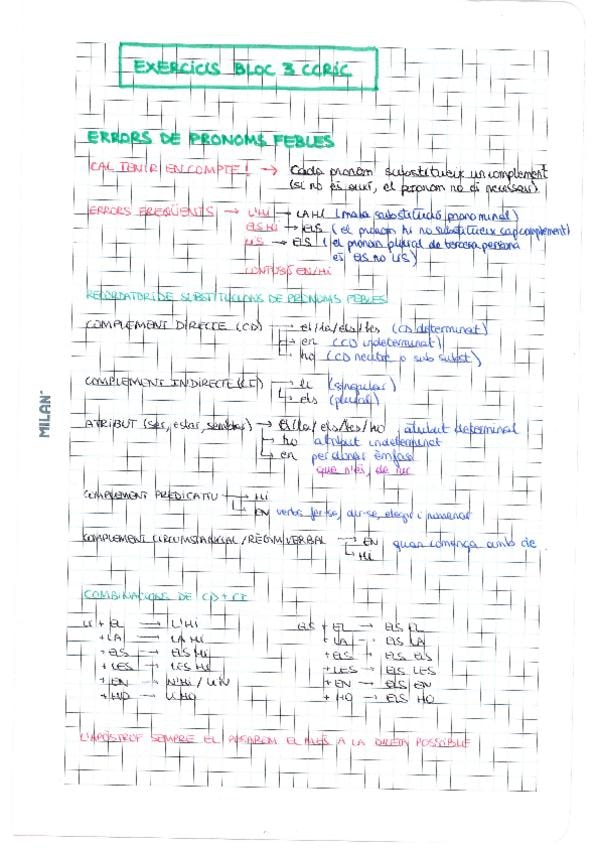 EXERCICIS BLOC 3 CCRIC
ERRORS DE PRONOMS FEBLES
CAL TENIR EN COMPTE! → Cada pronom substitueix un complement
(si no és així, el pronom no és necessari)
ERRORS FREQÜENTS → L'HI → LA HI (mala substitució pronominal)
ELS HI → ELS (el pronom hi no substitueix cap complement)
LIS → ELS (el pronom plural de tercera persona
és ELS no LIS)
CONFUSIÓ EN/HI
RECORDATORI DE SUBSTITUCIONS DE PRONOMS FEBLES
COMPLEMENT DIRECTE (CD) → el/la/els/les (CD determinat)
→ en (CD indeterminat)
→ ho (CD neutre o sub subst)
COMPLEMENT INDIRECTE (CI) → li (singular)
→ els (plural)
ATRIBUT (ser, estar, semblar) → el/la/els/les/ho atribut determinat
→ ho atribut indeterminat
→ en per donar èmfasi
que n'és, de
COMPLEMENT PREDICATIU → HI
→ EN verbs fer-se, dir-se, elegir i nomenar
COMPLEMENT CIRCUMSTANCIAL / RÈGIM VERBAL → EN quan comença amb de
→ HI
COMBINATIONS DE CD + CI
LI + EL → L'HI
ELS + EL → ELS EL
+ LA → LA HI
+ LA → ELS LA
+ ELS → ELS HI
+ ELS → ELS ELS
+ LES → LES HI
+ LES → ELS LES
+ EN → N'HI / LI'N
+ EN → ELS EN
+ HO → L'HO
+ HO → ELS HO
L'APÒSTROF SEMPRE EL POSAREM EL MÉS A LA DRETA POSSIBLE
MILAN